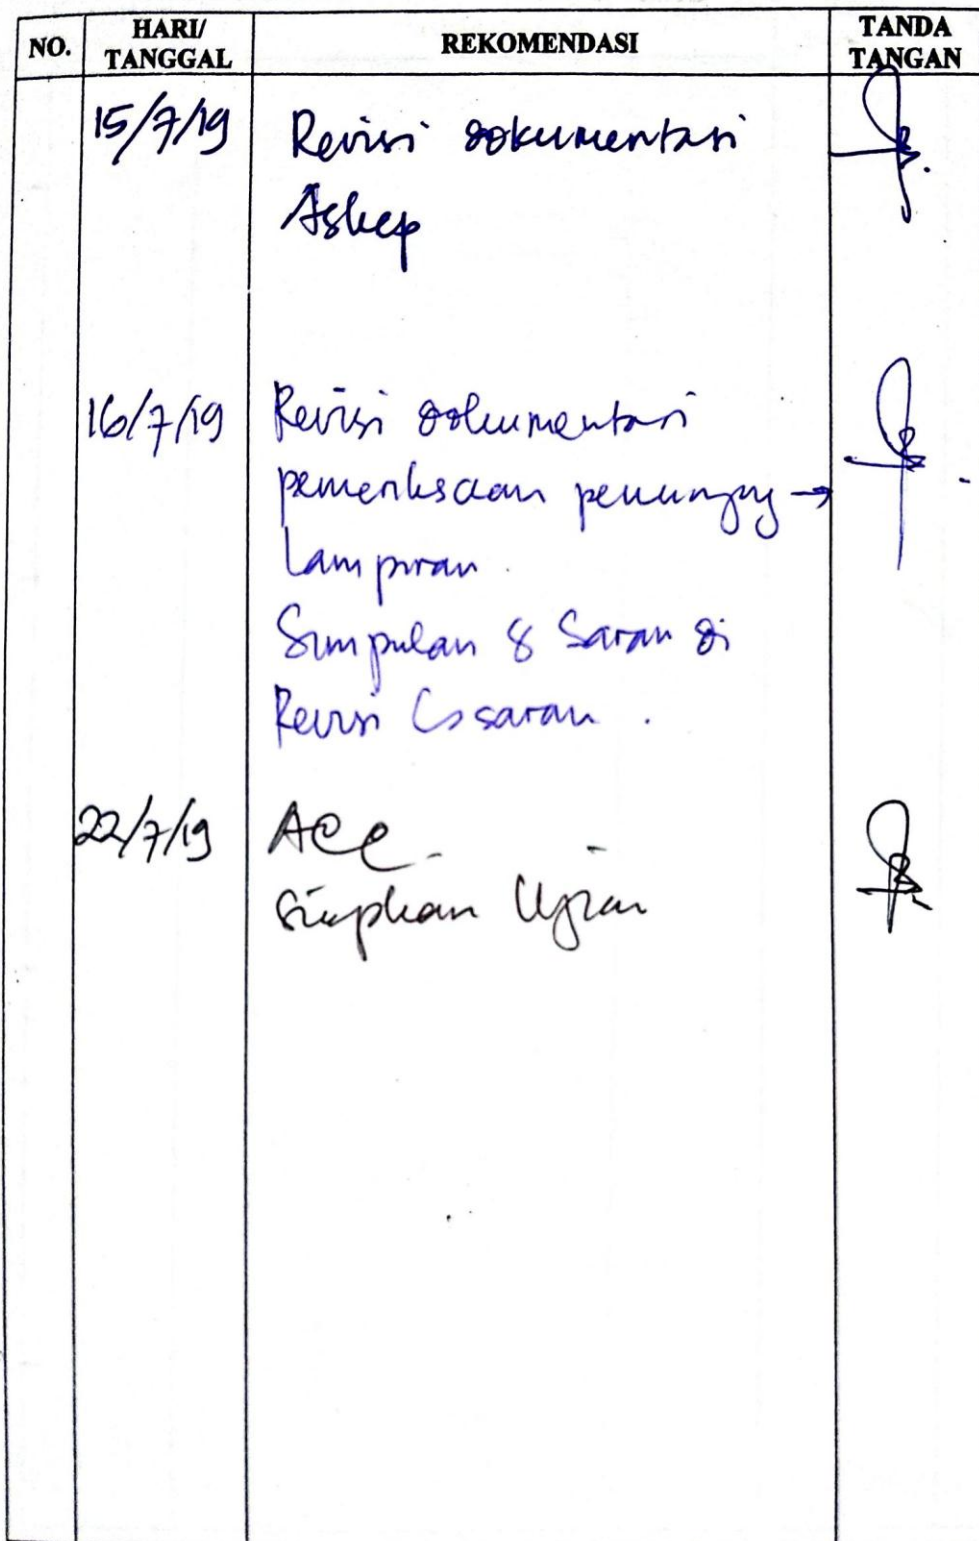 NO. HARI/ TANGGAL REKOMENDASI TANDA TANGAN
15/7/19 Revisi dokumentasi
Askep
16/7/19 Revisi dokumentasi
pemeriksaan penunjang →
Lampiran.
Simpulan & Saran di
Revisi ↳ saran.
22/7/19 Acc.
Siapkan Ujian